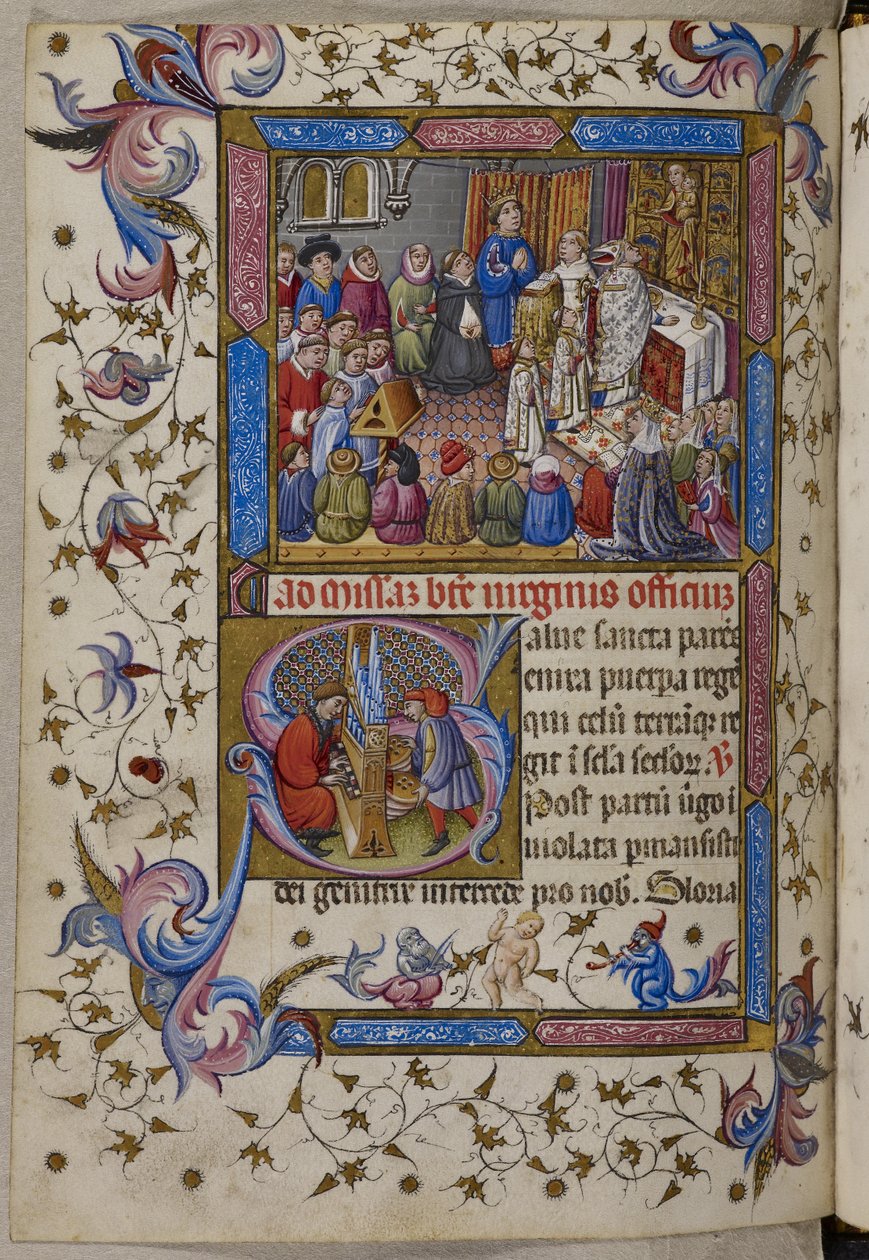 ad Missaz bt̄e uirginis officiuz
Salue sancta parēs
enixa puerꝑa regē
qui celū terrāqꝫ re
git ī scl̄a scl̄oꝝ. V
Post partū ūgo ī
uiolata ꝑmansisti
dei genitrix intercede pro nob̄. Gloria